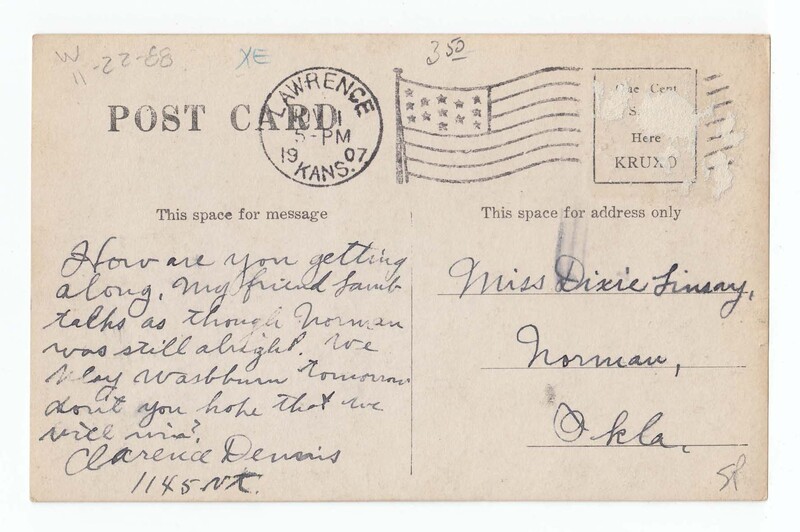 W
11-22-88
XE
3 50
POST CARD
LAWRENCE
NOV 1
5-PM
1907
KANS.
One Cent
Here
KRUXO
This space for message
This space for address only
How are you getting
along, My friend Lamb
talks as though Norman
was still alright. We
play Washburn tomorrow
don't you hope that we
will win?
Clarence Dennis
1145 Vt.
Miss Dixie Linsay,
Norman,
Okla,
SP